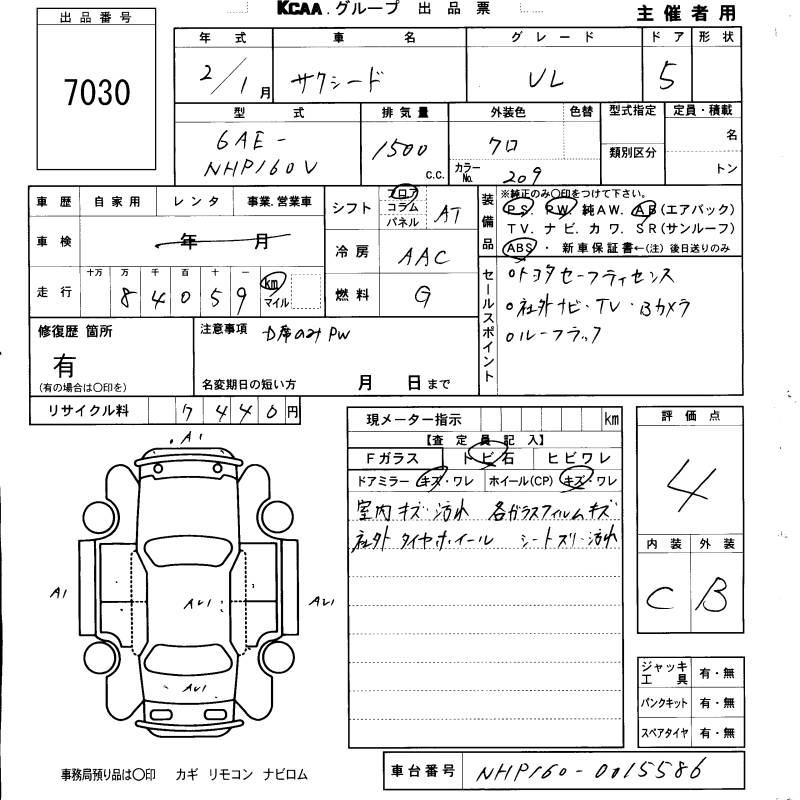 KCAA.グループ 出品票
主催者用
出品番号
7030
年式 車名 グレード ドア 形状
2/1月 サクシード UL 5
型式 排気量 外装色 色替 型式指定 定員・積載
6AE-
NHP160V
1500 c.c.
クロ
カラーNo. 209
類別区分
名
トン
車歴 自家用 レンタ 事業.営業車
車検 年 月
走行 十万 万 千 百 十 一
8 4 0 5 9 km マイル
シフト フロア コラム パネル AT
冷房 AAC
燃料 G
装備品
※純正のみ○印をつけて下さい。
PS. PW. 純AW. AB(エアバック)
TV. ナビ. カワ. SR(サンルーフ)
ABS ・ 新車保証書←(注)後日送りのみ
セールスポイント
○トヨタセーフティセンス
○社外ナビ・TV・Bカメラ
○ルーフラック
修復歴 箇所
有
(有の場合は○印を)
注意事項 D席のみPW
名変期日の短い方 月 日まで
リサイクル料 7 4 4 0 円
現メーター指示 km
【査定員記入】
Fガラス トビ石 ヒビワレ
ドアミラー キズ・ワレ ホイール(CP) キズ・ワレ
室内キズ・汚れ 各ガラスフィルムキズ
社外タイヤホイール シートスリ・汚れ
評価点
4
内装 外装
C B
ジャッキ工具 有・無
パンクキット 有・無
スペアタイヤ 有・無
A1
A1
AU1
AU1
AU1
事務局預り品は○印 カギ リモコン ナビロム
車台番号 NHP160-0015586